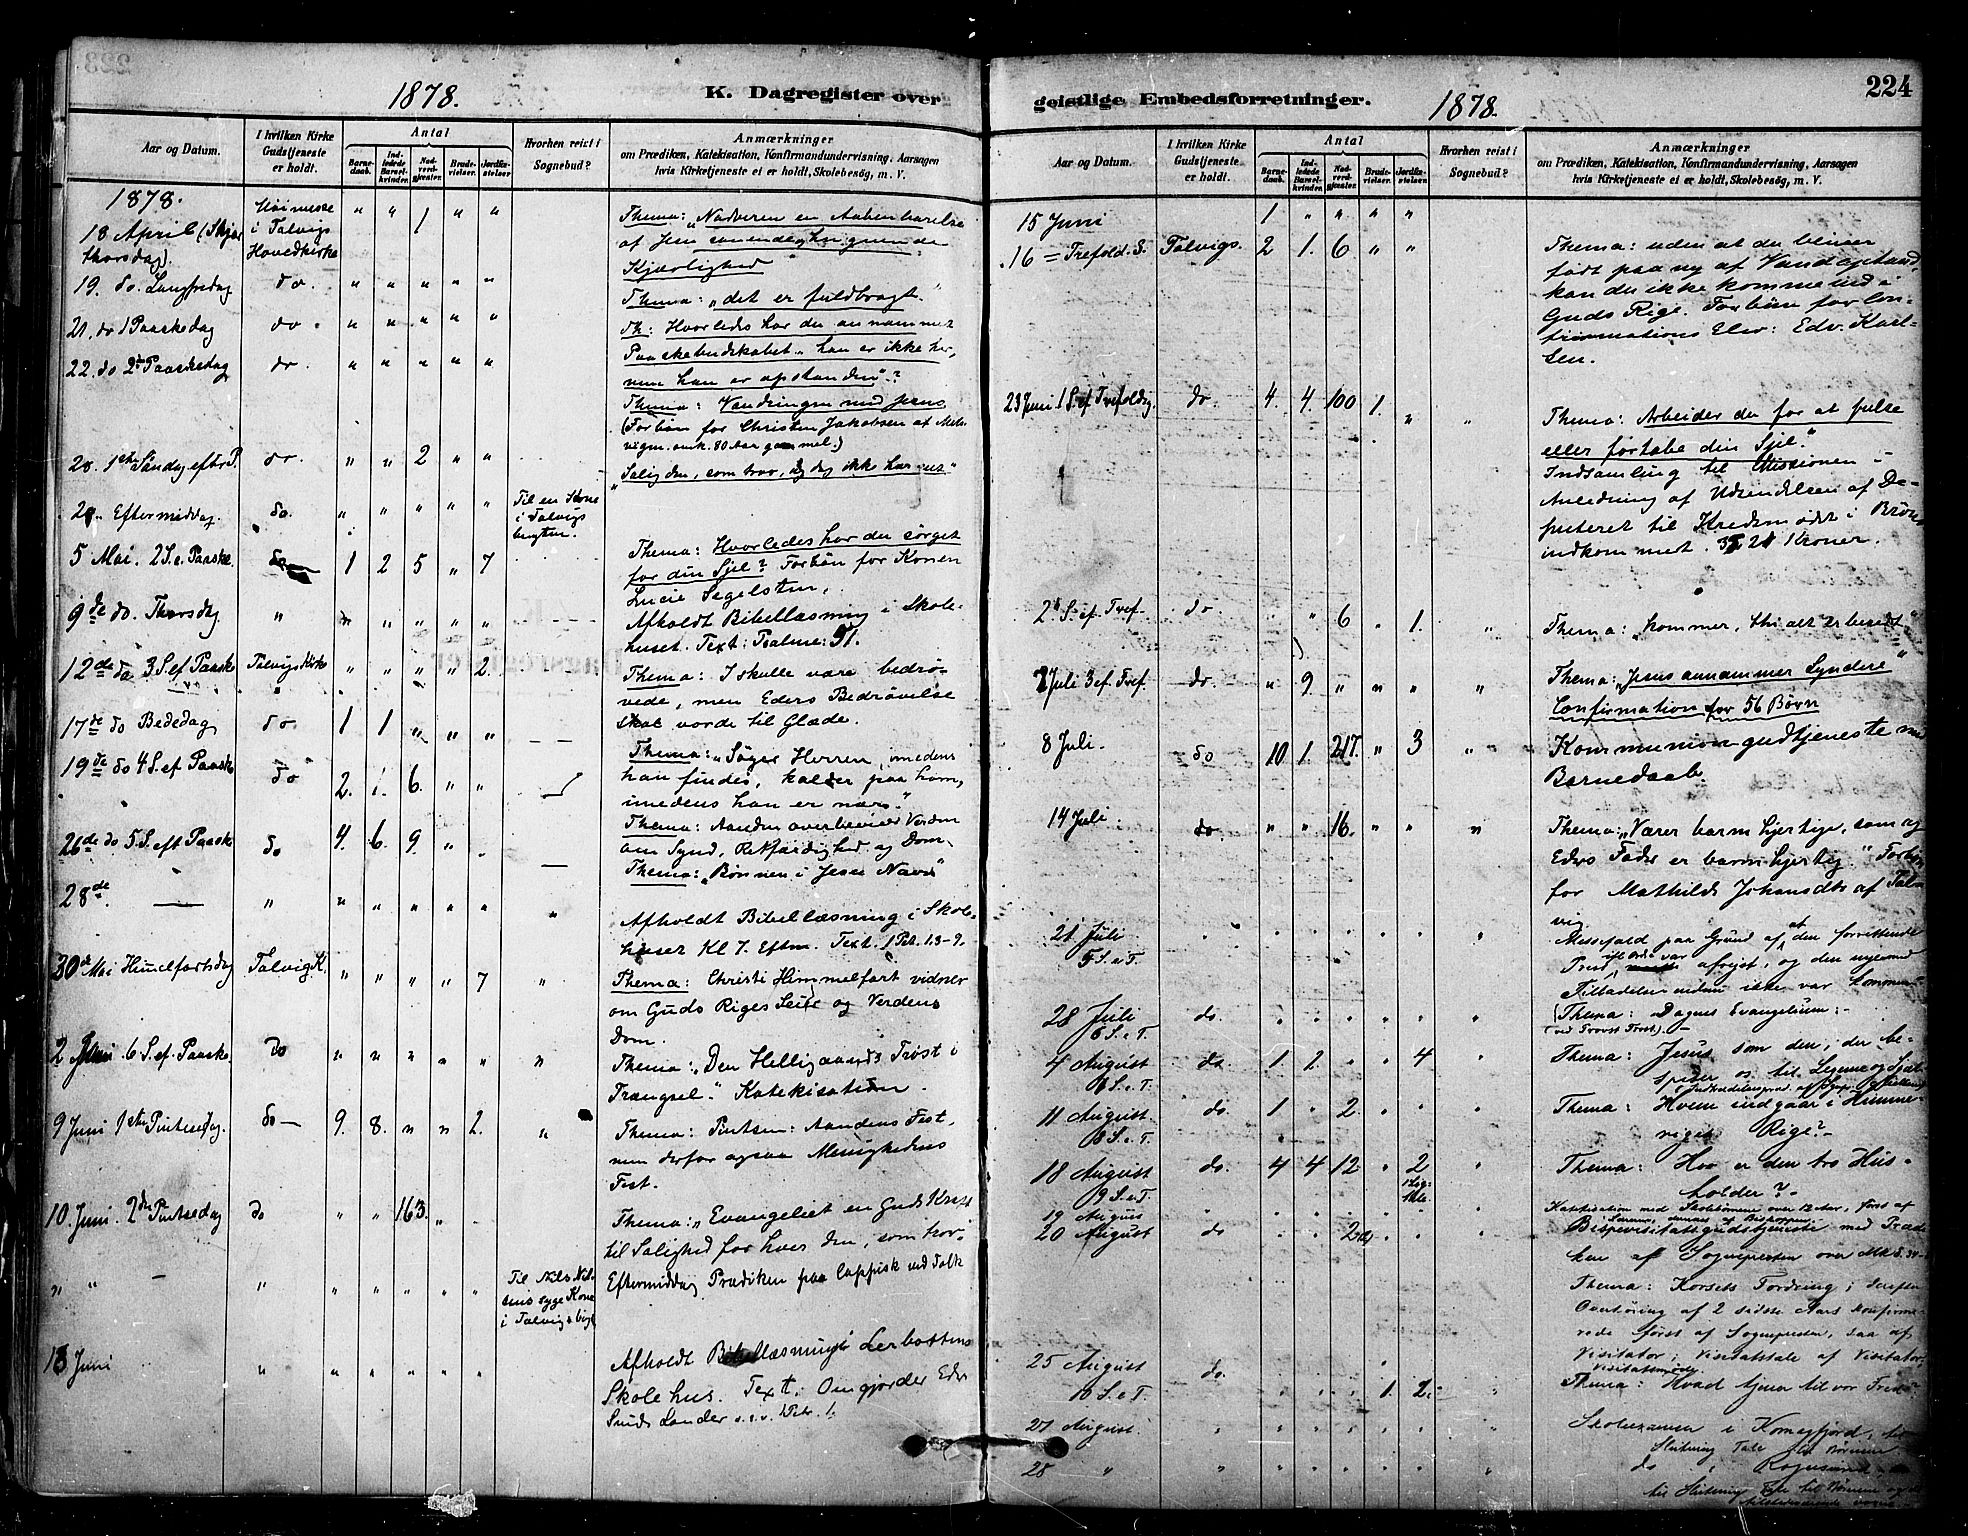 224
1878.
K. Dagregister over
Aar og Datum.
I hvilken Kirke Gudstjeneste er holdt.
Antal
Barnedaab.
Indledede Barselkvinder.
Nadverdgjæster.
Brudevielser.
Jordfæstelser
Hvorhen reist i Sognebud?
Anmærkninger
om Prædiken, Katekisation, Konfirmandundervisning, Aarsagen
hvis Kirketjeneste ei er holdt, Skolebesøg, m. V.
1878.
18 April (Skjær
thorsdag).
Høimesse
i Talvigs
Hovedkirke
" " 1 " "
Thema: "Nadveren en Aabenbarelse
af Jesu
Kjærlighed"
19. do. Langfredag do. " " " " "
Thema: "det er fuldbragt."
21. do 1 Paaskedag do. " " " " "
Th: Hvorledes har du annammet
Paaskebudskabet "han er ikke her,
men han er opstanden"?
22. do 2den Paaskedag do. " " " " "
Thema: Vandringen med Jesus
(Forbøn for Christen Jakobsen af
80 Aar gammel.)
28. 1ste Søndag efter P. do. " " 2 " "
"Salig den, som tror, og dog ikke har seet"
28. Eftermiddag. do. " " " " "
Til en Kone
i Talvigs
bugten.
5 Mai. 2 S. e. Paaske. do 1 2 5 " 7
Thema: Hvorledes har du sørget
for din Sjel? Forbøn for Konen
Lucie Segelsten,
9de do. Thorsdag " " " " " "
Afholdt Bibellæsning i Skole-
huset. Text: Psalme: 51.
12de do 3 S. ef Paaske Talvigs Kirke " " " " 2.
Thema: I skulle være bedrø-
vede, men Eders Bedrøvelse
skal vorde til Glæde.
17de do Bededag do 1 1 " " "
Thema: "Søger Herren, medens
han findes, kalder paa ham,
imedens han er nær."
19de do 4 S. ef. Paaske do 2. 1. 6. " "
Thema: Aanden overbeviser Verden
om Synd, Retfærdighed og Dom.
26de do 5 S. eft Paaske do 4. 6. 9. " "
Thema: "Bønnen i Jesu Navn"
28de. " " " " " " "
Afholdt Bibellæsning i Skole-
huset Kl 7. Eftm. Text. 1 Pet. 1.3-9.
30de Mai Himelfartsdag Talvig K. " " " " 7 "
Thema: Christi Himmelfart vidner
om Guds Riges Seier og Verdens
Dom.
2 Juni. 6 S. ef. Paaske. do " " " " " "
Thema: "Den Helligaands Trøst i
Trængsel." Katekisation.
9 Juni 1ste Pintsedag. do 9. 8. " " 2. "
Thema: Pintsen: Aandens Fest,
men derfor ogsaa Menighedens
Fest.
10. Juni. 2den Pintsedag do " " 163. " "
Thema: "Evangeliet en Guds Kraft
til Salighed for hver den, som tror."
" " " " " " " "
Til Nils Nil-
sens syge Kone
i Talvigsbugt
Eftermiddag Prædiken paa Lappisk ved Tolk
13 Juni " " " " " "
Afholdt Bibellæsning i Lerbottens
Skolehus. Text. Omgjorder Eders
Sinds Lænder o.s.v. 1 Petr. 1.
geistlige Embedsforretninger.
1878.
Aar og Datum.
I hvilken Kirke Gudstjeneste er holdt.
Antal
Barnedaab.
Indledede Barselkvinder.
Nadverdgjæster.
Brudevielser.
Jordfæstelser
Hvorhen reist i Sognebud?
Anmærkninger
om Prædiken, Katekisation, Konfirmandundervisning, Aarsagen
hvis Kirketjeneste ei er holdt, Skolebesøg, m. V.
15 Juni 1 " " " "
16 = Trefold. S. Talvigs. 2 1. 6 " "
Thema: uden at du bliver
født paa ny af Vand og Aand,
kan du ikke komme ind i
Guds Rige. Forbøn for Con-
firmations Elev: Edv. Karl-
sen.
23 Juni 1 S. ef Trefoldig. do. 4. 4. 100 1. " "
Thema: Arbeider du for at frelse
eller fortabe din Sjel."
Indsamling til Missionen i
Anledning af Udsendelsen af De-
puteret til Kredsmødet i
indkommet. Kroner.
2d S. ef. Tref. do. " 6 " 1. "
Thema: "Kommer, thi alt er beredt"
7 Juli 3 ef. Tref. do. " 9 " " " "
Thema: "Jesus annammer Syndere"
Confirmation for 56 Børn
8 Juli. do 10 1. 217. " 3 "
Kommuniongudtjeneste med
Barnedaab.
14 Juli. do. " " 16. " " "
Thema: "Værer barmhjertige, som og
Eders Fader er barmhjertig." Forbøn
for Mathilde Johansdtr af Tal-
vig
21 Juli
5 S. e T.
Messefald paa Grund af, at den forrettende
Præst var afreist, og den
Tilladelse endnu ikke var kommen
28 Juli do.
6 S. e T.
(Thema: Dagens Evangelium:-
(ved Provst Frost).-
4 August do. 1. 2. " " 4
6 S. e T.
Thema: Jesus som den, der be-
spiser os til Legeme og Sjæl
11 August. do. 1 " 2.
8 S. e T.
Thema: Hvem indgaar i Himme-
riges Rige?-
18 August do. 4 4 12 " 2
9 S. e T.
Thema: Hvo er den tro Hus-
holder?-
19 August
Katekisation med Skolebørnene over 12 Aar, først af
20 August do
Bispevisitatsgudstjeneste med Prædi-
ken af Sognepresten over
Thema: Korsets Fordring; derefter
Overhøring af 2 sidste Aars Konfirme-
rede først af Sognepresten, saa af
Visitator; Visitatstale af Visitator;
25 August do. 1. 2.
10 S. e T.
Thema: Hvad tjener til vor Fred?
27 August.
Skolexamen i Komagfjord,
Slutning Tale til Børnene
28 " "
do i Rognsund
til Slutning Tale til Børnene og de